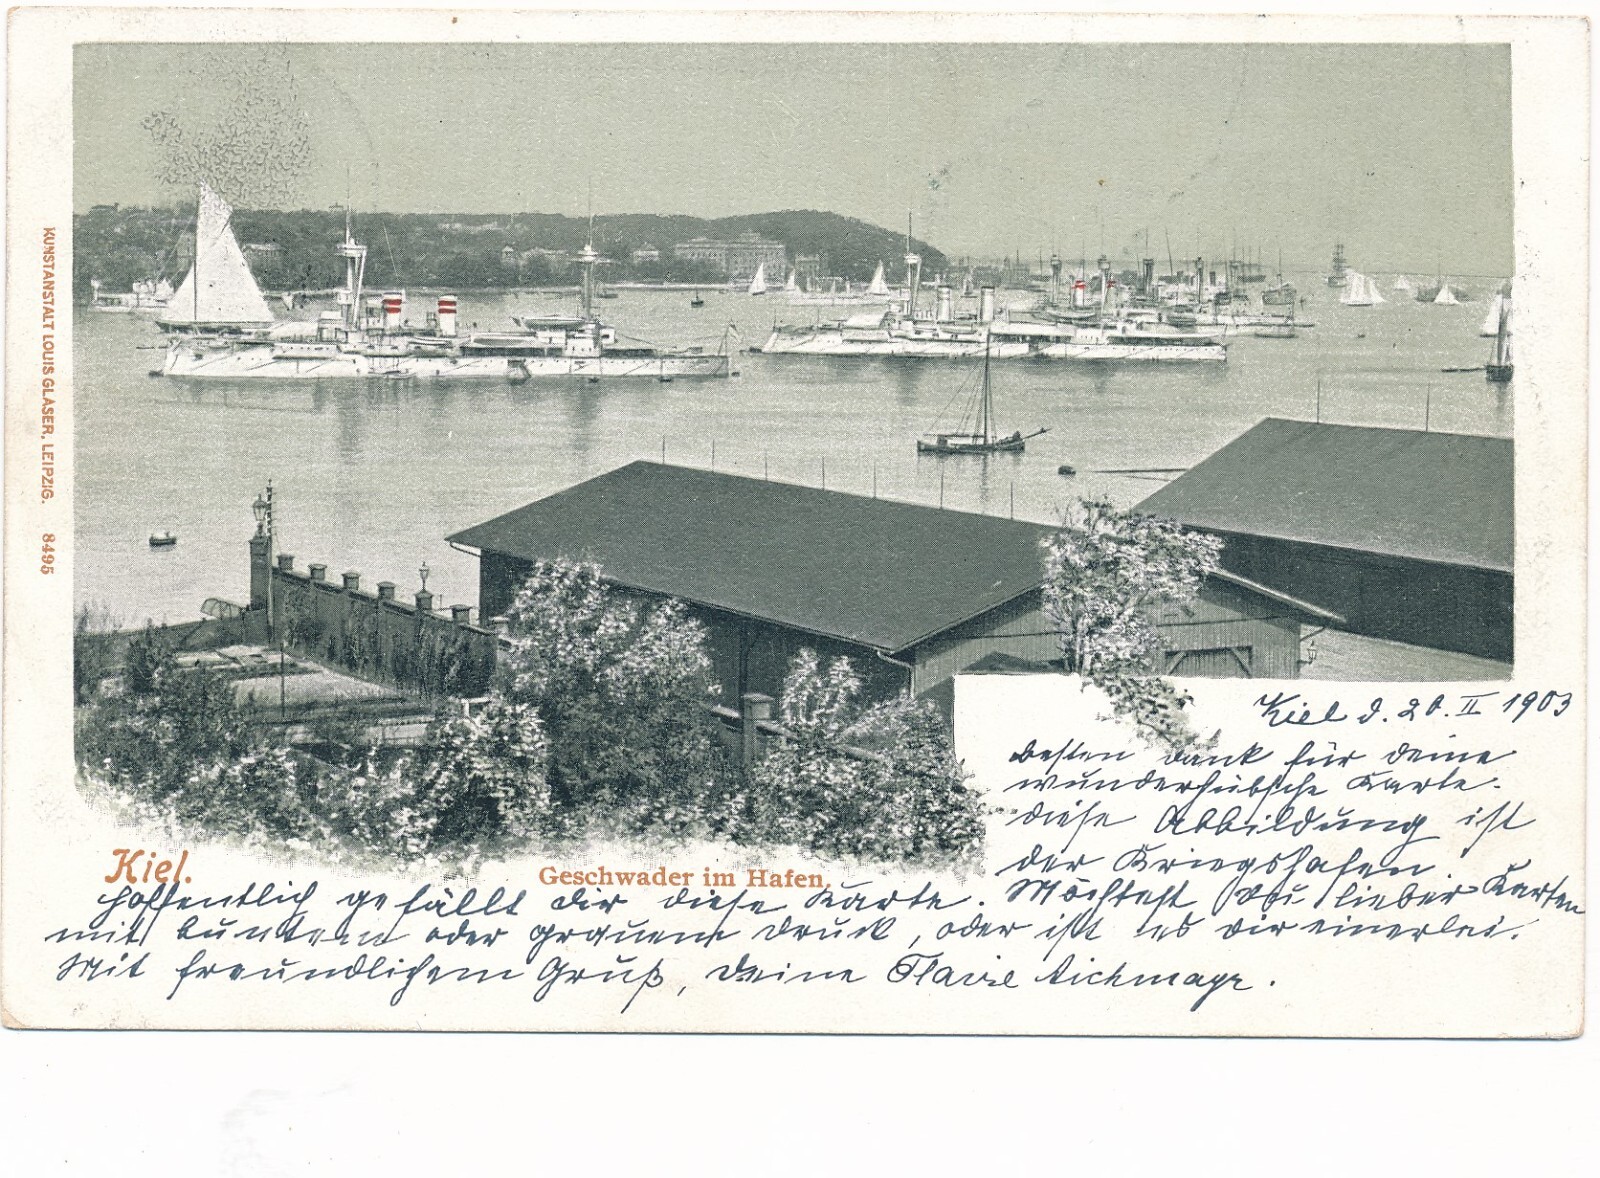 KUNSTANSTALT LOUIS GLASER, LEIPZIG. 8495
Kiel d. 20. II 1903
besten Dank für deine
wunderhübsche Karte.
diese Abbildung ist
der Kriegshafen.
Kiel.
Geschwader im Hafen.
hoffentlich gefällt dir diese Karte. Möchtest Du lieber Karten
mit buntem oder grauem Druck, oder ist es dir einerlei.
Mit freundlichem Gruß, Deine Aichmayr.